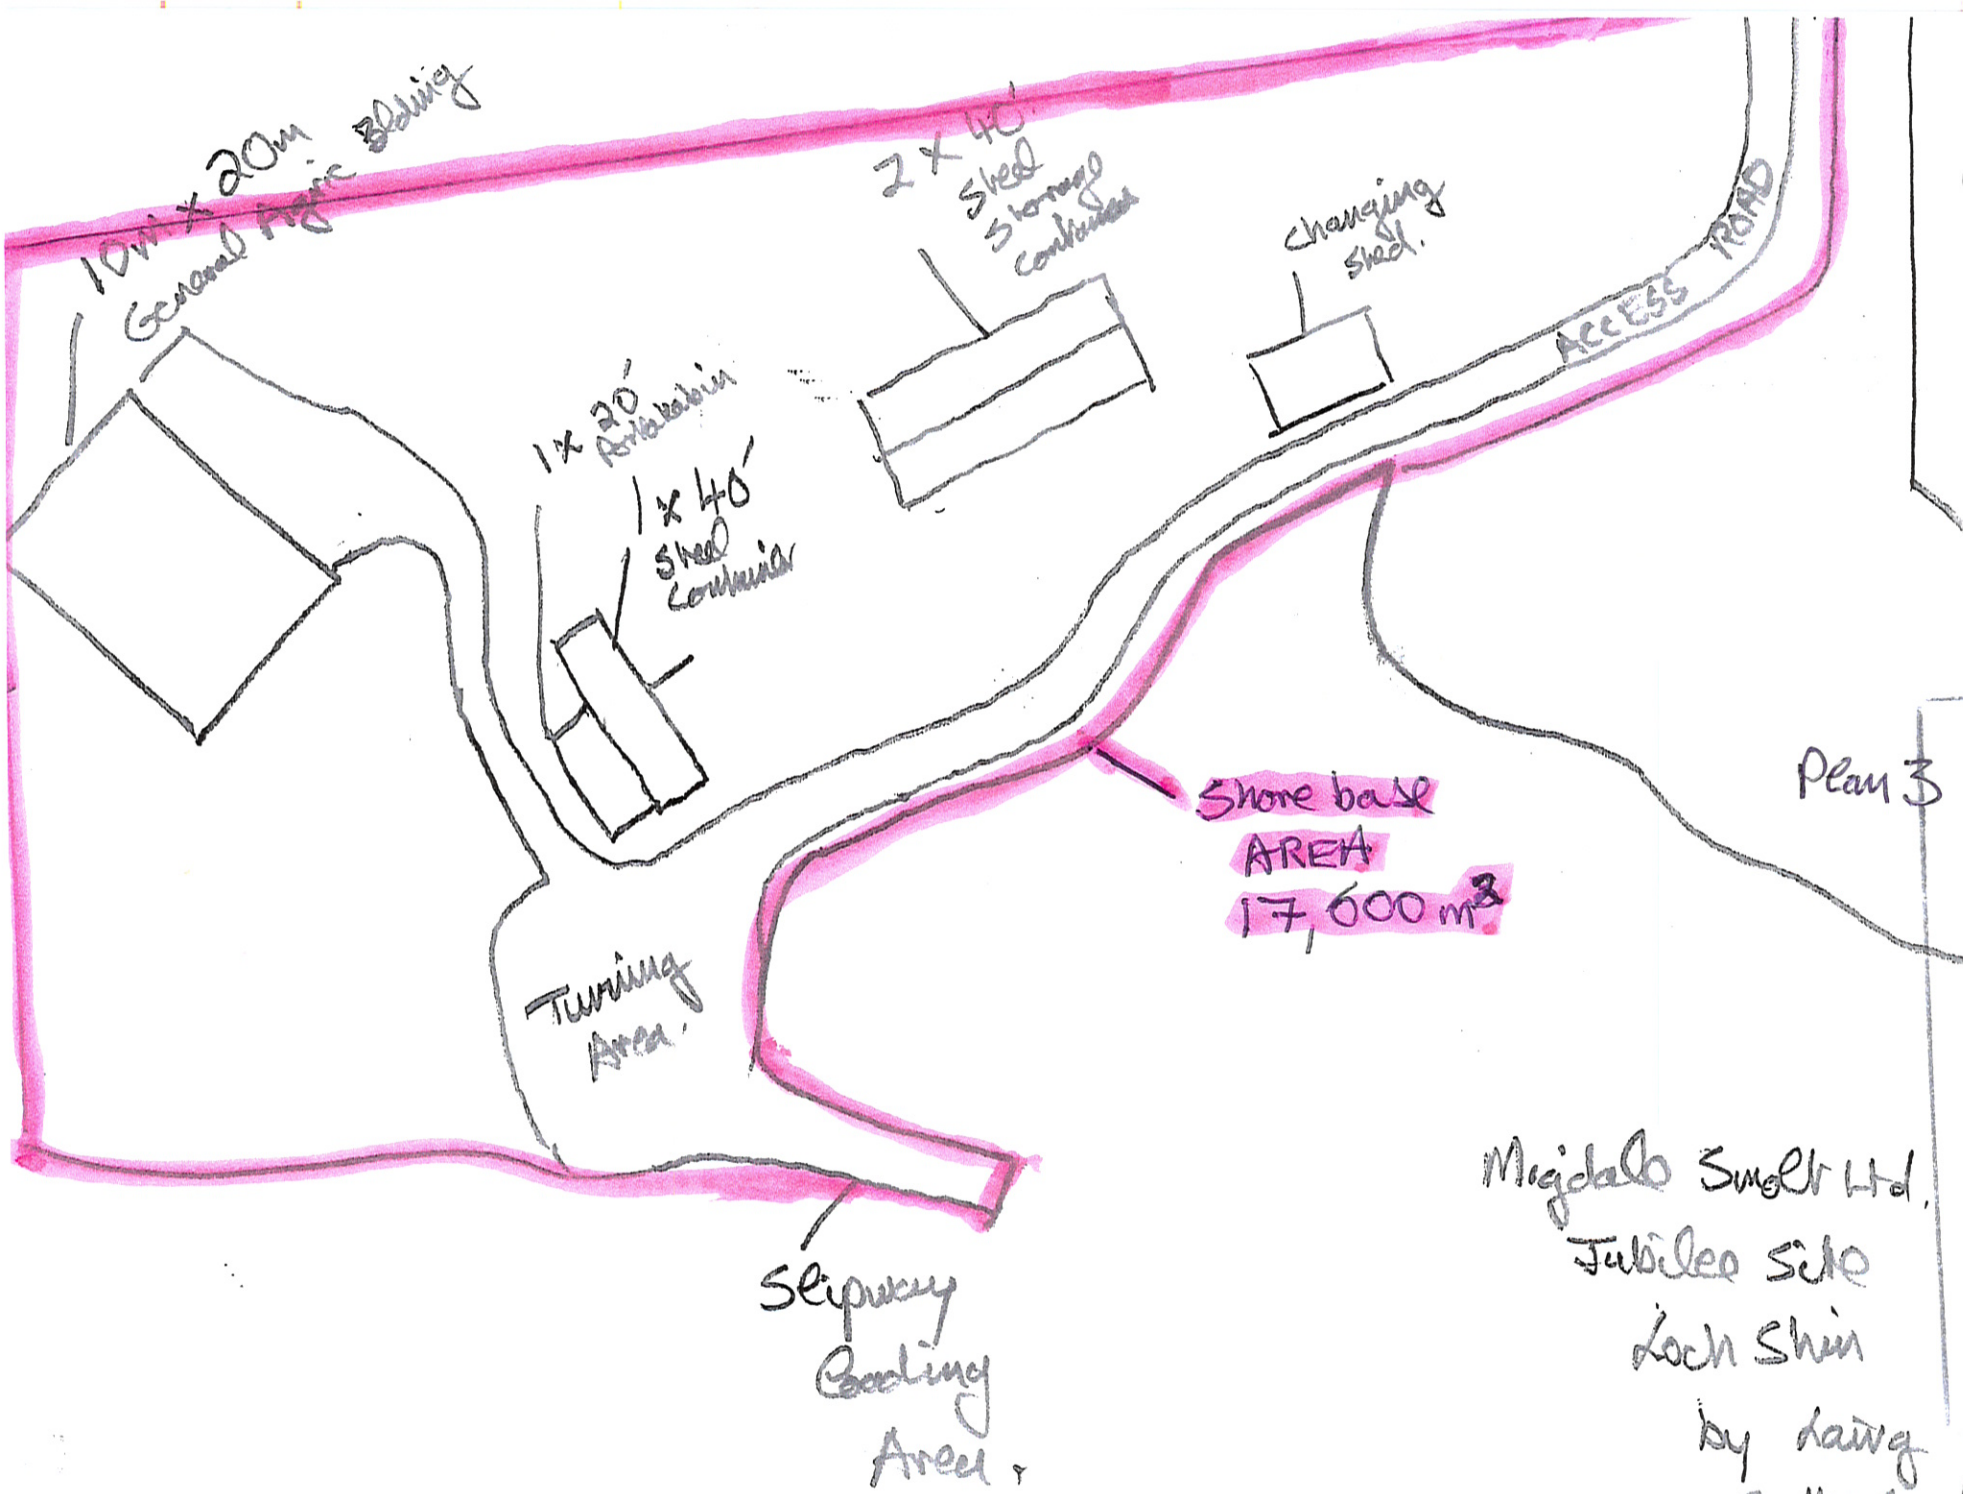 10m x 20m
General Agric Blding
2 x 40'
Steel
Storage
Container
changing
shed.
ACCESS ROAD
1 x 20'
Portakabin
1 x 40'
Steel
Container
Plan 3
Shore base
AREA
17,600 m²
Turning
Area.
Slipway
Loading
Area.
Migdale Smolt Ltd.
Jubilee Site
Loch Shin
by Lairg